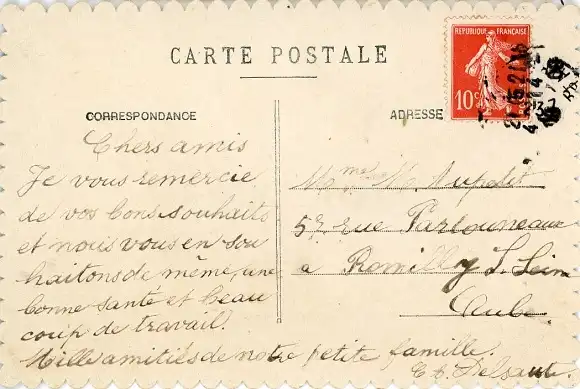 CARTE POSTALE
REPUBLIQUE FRANÇAISE
10c
CORRESPONDANCE
ADRESSE
Chers amis
Je vous remercie
de vos bons souhaits
et nous vous en sou
haitons de même, une
bonne santé et beau
coup de travail.
Mille amitiés de notre petite famille.
Mme M.
57 rue
à Romilly S. Seine
Aube